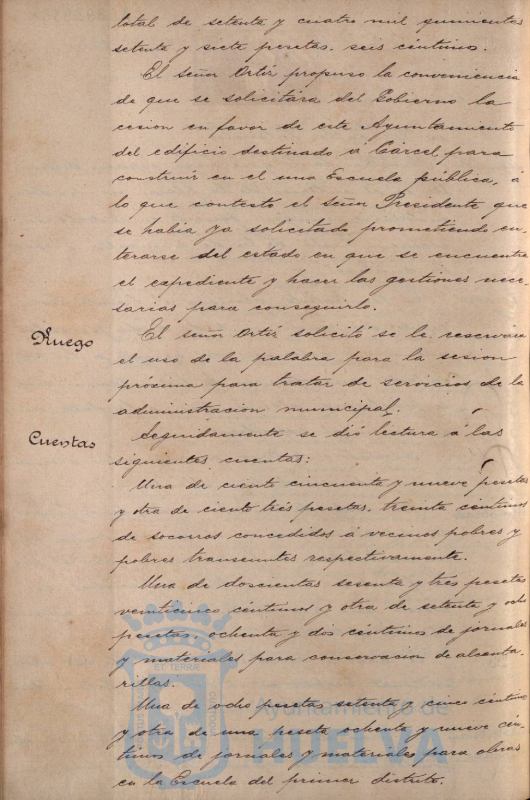 total de setenta y cuatro mil quinientas
setenta y siete pesetas, seis céntimos.
El señor Ortiz propuso la conveniencia
de que se solicitára del Gobierno la
cesion en favor de este Ayuntamiento
del edificio destinado á Cárcel para
construir en el una Escuela pública, á
lo que contestó el señor Presidente que
se habia ya solicitado prometiendo en-
terarse del estado en que se encuentra
el expediente y hacer las gestiones nece-
sarias para conseguirlo.
Ruego
El señor Ortiz solicitó se le reservára
el uso de la palabra para la sesion
próxima para tratar de servicios de la
administracion municipal.
Cuentas
Seguidamente se dió lectura á las
siguientes cuentas:
Una de ciento cincuenta y nueve pesetas
y otra de ciento tres pesetas, treinta céntimos
de socorros concedidos á vecinos pobres y
pobres transeuntes respectivamente.
Una de doscientas sesenta y tres pesetas
veinticinco céntimos y otra de setenta y ocho
pesetas, ochenta y dos céntimos de jornales
y materiales para conservacion de alcanta-
rillas.
Una de ocho pesetas setenta y cinco céntimos
y otra de una peseta ochenta y nueve cén-
timos de jornales y materiales para obras
en la Escuela del primer distrito.
Ayuntamiento de
HUELVA